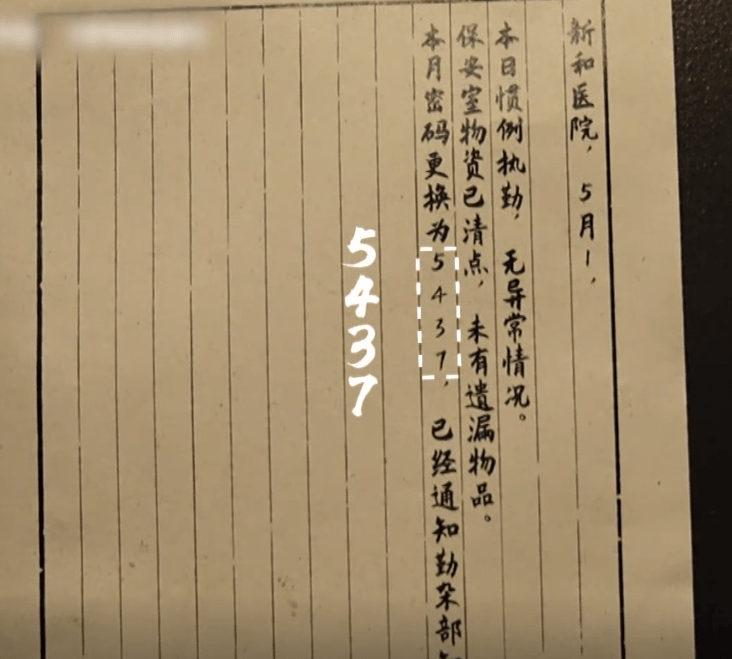 新和医院，5月1，
本日惯例执勤，无异常情况。
保安室物资已清点，未有遗漏物品。
本月密码更换为5437，已经通知勤杂部
5437